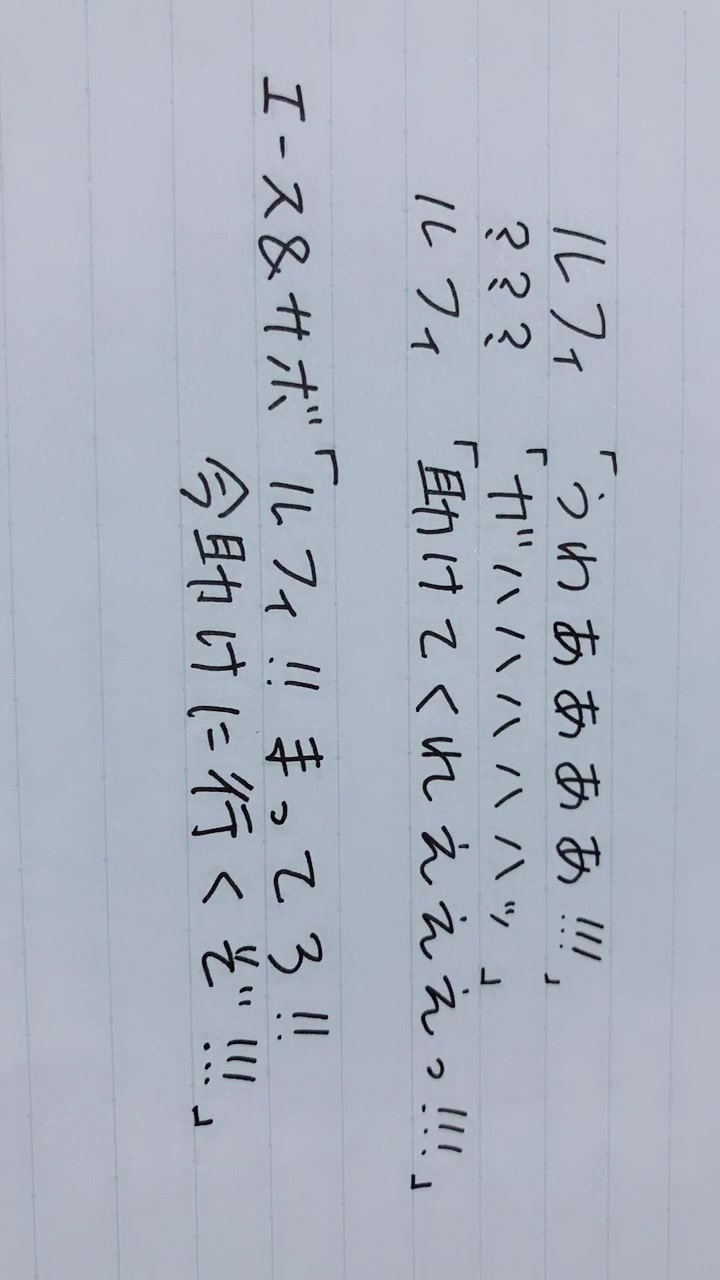 ルフィ「うわああああ!!!」
???「ガハハハハハッ」
ルフィ「助けてくれえええっ!!!」
エース&サボ「ルフィ!!まってろ!!
今助けに行くぞ!!!」